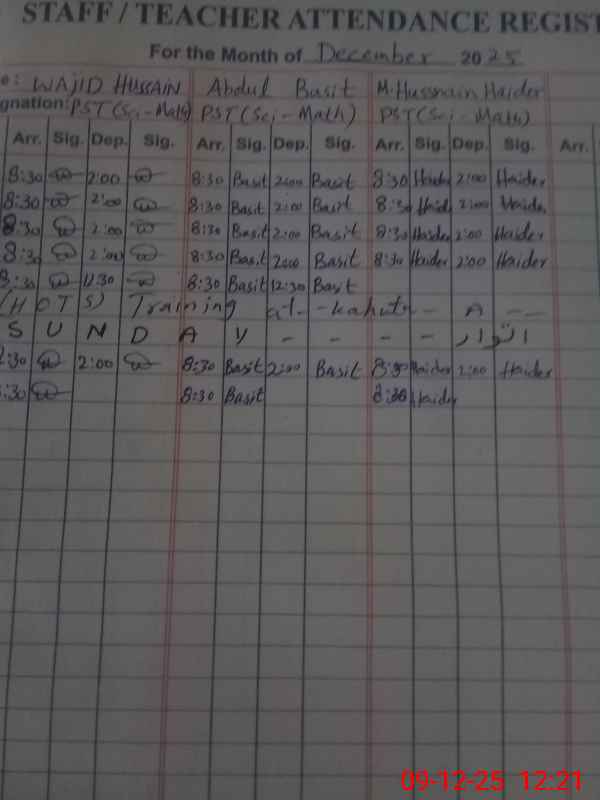 STAFF / TEACHER ATTENDANCE REGIST
For the Month of December 2025
e: WAJID HUSSAIN Abdul Basit M. Hussnain Haider
gnation: PST (Sci-Math) PST (Sci-Math) PST (Sci-Math)
Arr. Sig. Dep. Sig. Arr. Sig. Dep. Sig. Arr. Sig. Dep. Sig. Arr. Sig.
8:30 2:00 8:30 Basit 2:00 Basit 8:30 Haider 2:00 Haider
8:30 2:00 8:30 Basit 2:00 Basit 8:30 Haider 2:00 Haider
8:30 2:00 8:30 Basit 2:00 Basit 8:30 Haider 2:00 Haider
8:30 2:00 8:30 Basit 2:00 Basit 8:30 Haider 2:00 Haider
8:30 12:30 8:30 Basit 12:30 Basit
(HOTS) Training at - kahuta - A - -
S U N D A Y - - - - اتوار
:30 2:00 8:30 Basit 2:00 Basit 8:30 Haider 2:00 Haider
:30 8:30 Basit 8:30 Haider
09-12-25 12:21